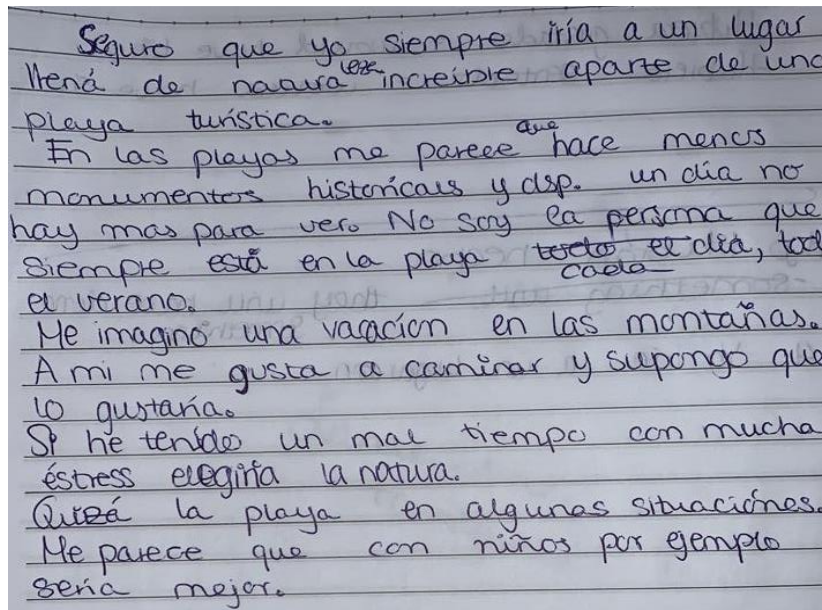 Seguro que yo siempre iría a un lugar
llená de natura leza increíble aparte de una
playa turística.
En las playas me parece que hace menos
monumentos históricas y dsp. un día no
hay mas para ver. No soy la persona que
siempre está en la playa todo el día, cada tod
el verano.
Me imagino una vacacíon en las montañas.
A mi me gusta a caminar y supongo que
lo gustaría.
Si he tenido un mal tiempo con mucha
éstress elegiría la natura.
Quizá la playa en algunas situaciónes.
Me parece que con niños por ejemplo
sería mejor.